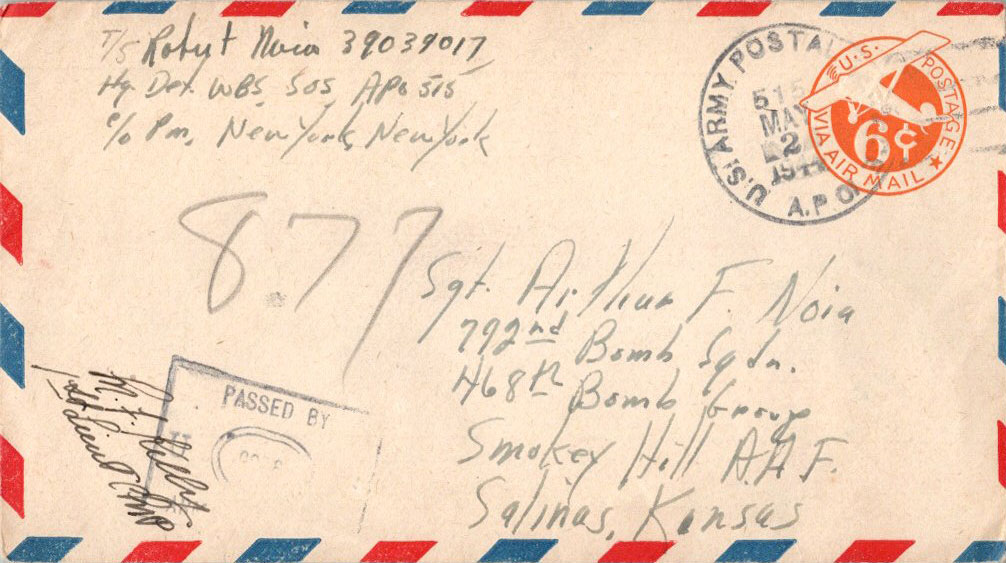 T/5 Robert Noia 39039017
Hq. Det. WBS, SOS APO 515
c/o Pm, New York, New York
U.S. ARMY POSTAL
515
MAY
2
A.P.O.
U.S. POSTAGE
6¢
VIA AIR MAIL
8.77
Sgt. Arthur F. Noia
792nd Bomb Sqdn.
468th Bomb Group
Smokey Hill A.A.F.
Salinas, Kansas
PASSED BY